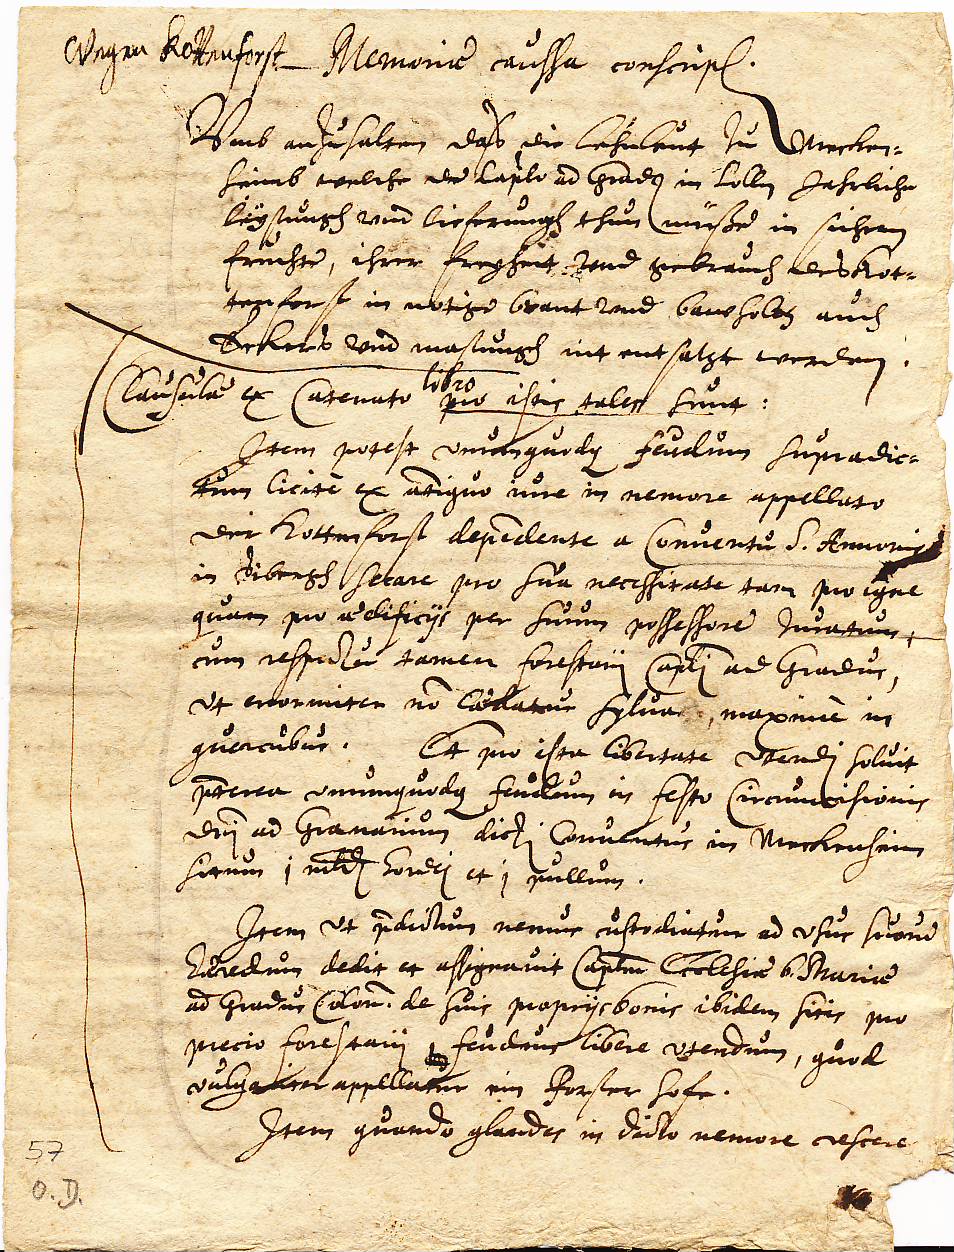 Wegen Kottenforst – Memoriæ caussa conscript.
Umb anzuhalten das die Lehnleut zu Mecken-
heimb welche dē Caplo ad Grad in Colln Jahrliche
leystungh vnd lieferungh thun müßē in sichern
fruchtē, ihrer freyheit vnd gebrauch des Kot-
tenforst in notigē brant vnd bawholtz auch
Eckers vnd mastungh nit entsatzt werden.
Clausulæ ex Catenato libro pro istis tales sunt:
Item potest vnumquodq feudum supradic-
tum licitē ex ātiquo iure in nemore appellato
der Kottenforst depēdente a Conventu S. Annonis
in Sibergh secare pro sua necessitate tam pro igne
quam pro ædificijs per suum possessorē Juratum,
cum respectu tamen forestarij Capli ad Gradus,
ut enormiter nō lædatur sylva, maximè in
quercubus. Et pro ista libertate utendi soluit
p̄terea vnumquodq feudum in festo Circumcisionis
Dnj ad Granarium dicti Conventus in Meckenheim
situm j mldr hordej et j pullum.
Item ut p̄dictum nemus custodiatur ad usus suorū
hæredum dedit et assignavit Captm Ecclesiæ b. Mariæ
ad Gradus Colon. de suis proprijs bonis ibidem sitis pro
precio forestarij, feudum libere utendum, quod
vulgariter appellatur ein Forster hofe.
Item quando glandes in dicto nemore crescere
57
O. D.